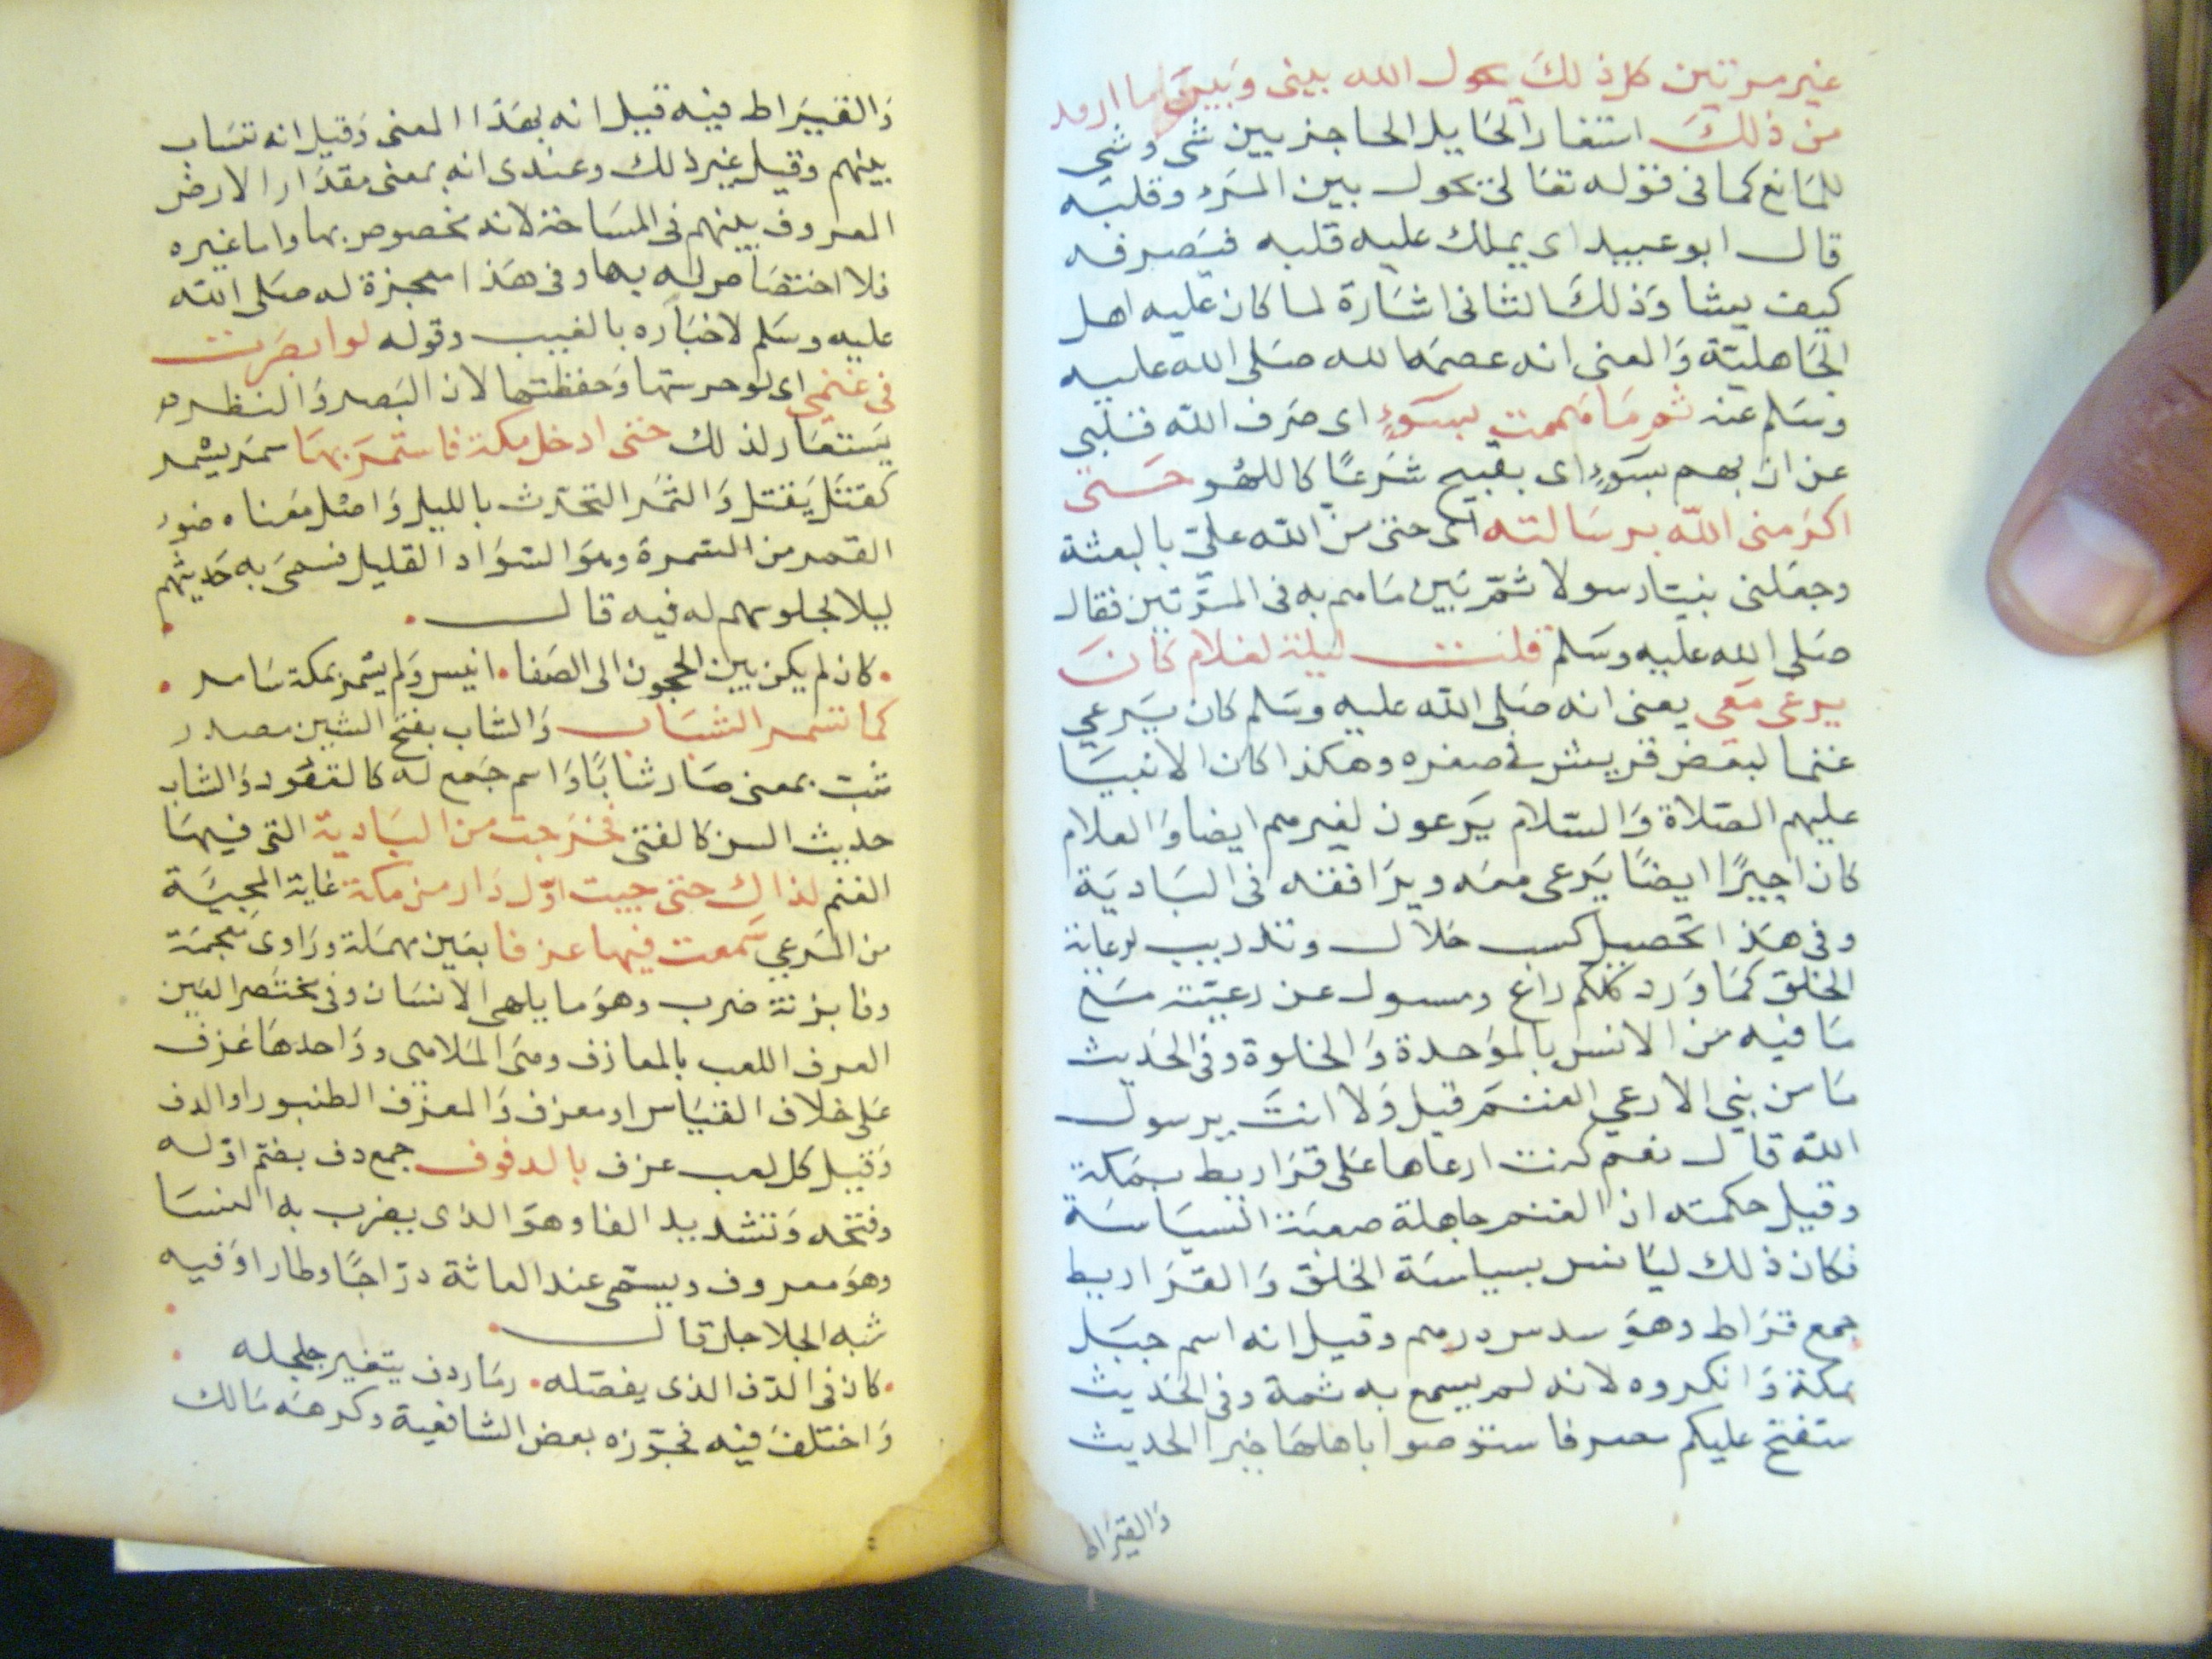 غير مرتين كل ذلك يحول الله بيني وبين ما اريد
من ذلك استعار الحايل الحاجز بين شي وشي
للمانع كما في قوله تعالى يحول بين المرء وقلبه
قال ابو عبيد اى يملك عليه قلبه فيصرفه
كيف يشا وذلك الثاني اشارة لما كان عليه اهل
الجاهلية والمعنى انه عصمه الله صلى الله عليه
وسلم عنه ثم ما هممت بسوء اى صرف الله قلبي
عن ان يهم بسوء اى بقبيح شرعا كاللهو حتى
اكرمني الله برسالته اى حتى من الله علي بالبعثة
وجعلني نبيا رسولا ثم بين ما هم به في المرتين فقال
صلى الله عليه وسلم قلت ليلة لغلام كان
يرعى معي يعنى انه صلى الله عليه وسلم كان يرعي
غنما لبعض قريش في صغره وهكذا كان الانبيا
عليهم الصلاة والسلام يرعون لغيرهم ايضا والغلام
كان اجيرا ايضا يرعى معه ويرافقه في البادية
وفي هذا تحصيل كسب حلال وتدريب لرعاية
الخلق كما ورد كلكم راع ومسول عن رعيته مع
ما فيه من الانس بالوحدة والخلوة وفي الحديث
ما من نبي الا رعي الغنم قيل ولا انت يرسول
الله قال نعم كنت ارعاها على قراريط بمكة
وقيل حكمته ان الغنم جاهلة صعبة السياسة
فكان ذلك ليانس بسياسة الخلق والقراريط
جمع قراط وهو سدس درهم وقيل انه اسم جبل
بمكة وانكروه لانه لم يسمع به ثمة وفي الحديث
ستفتح عليكم مصر فاستوصوا باهلها خيرا الحديث
والقيراط
والقيراط فيه قيل انه بهذا المعنى وقيل انه تساب
بينهم وقيل غير ذلك وعندى انه بمعنى مقدار الارض
المعروف بينهم في المساحة لانه مخصوص بها واما غيره
فلا اختصاص له بها وفي هذا معجزة له صلى الله
عليه وسلم لاخباره بالغيب وقوله لو ابصرت
في غنمي اى لو حرستها وحفظتها لان البصر والنظر
يستعار لذلك حتى ادخل مكة فاستمر بها سمر يسمر
كقتل يقتل والسمر التحدث بالليل واصل معناه ضوء
القمر من السمرة وهو السواد القليل فسمى به حديثهم
ليلا لجلوسهم له فيه قال
كان لم يكن بين الحجون الى الصفا • انيس ولم يسمر بمكة سامر
كما تسمر الشباب والشاب بفتح الشين مصدر
شب بمعنى صار شابا واسم جمع له كالقعود والشاب
حديث السن كالفتى فخرجت من البادية التى فيها
الغنم لذاك حتى جيت اول دار من مكة غاية المجية
من المرعي سمعت فيها عزفا بعين مهملة وزاى معجمة
وفا بزنة ضرب وهو ما يلهى الانسان وفي مختصر العين
العزف اللعب بالمعازف وهى الملاهى وواحدها عزف
على خلاف القياس او معزف والمعزف الطنبور او الدف
وقيل كل لعب عزف بالدفوف جمع دف بضم اوله
وفتحه وتشديد الفا وهو الذى يضرب به النسا
وهو معروف ويسمى عند العامة دراجا وطارا وفيه
شبه الجلاجل قال
كان في الدف الذى يفصله • رمادف يتغير جلجله
واختلف فيه فجوزه بعض الشافعية وكرهه مالك